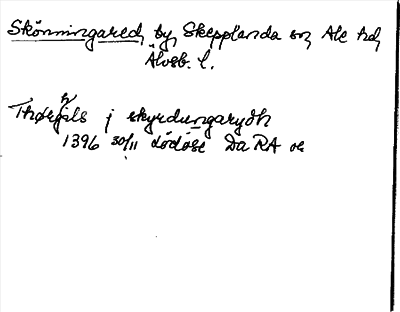 Skönningared, by, Skepplanda sn, Ale hd,
Älvsb. l.
Thørgils j skyrdungarydh
1396 30/11 Lödöse Da RA or